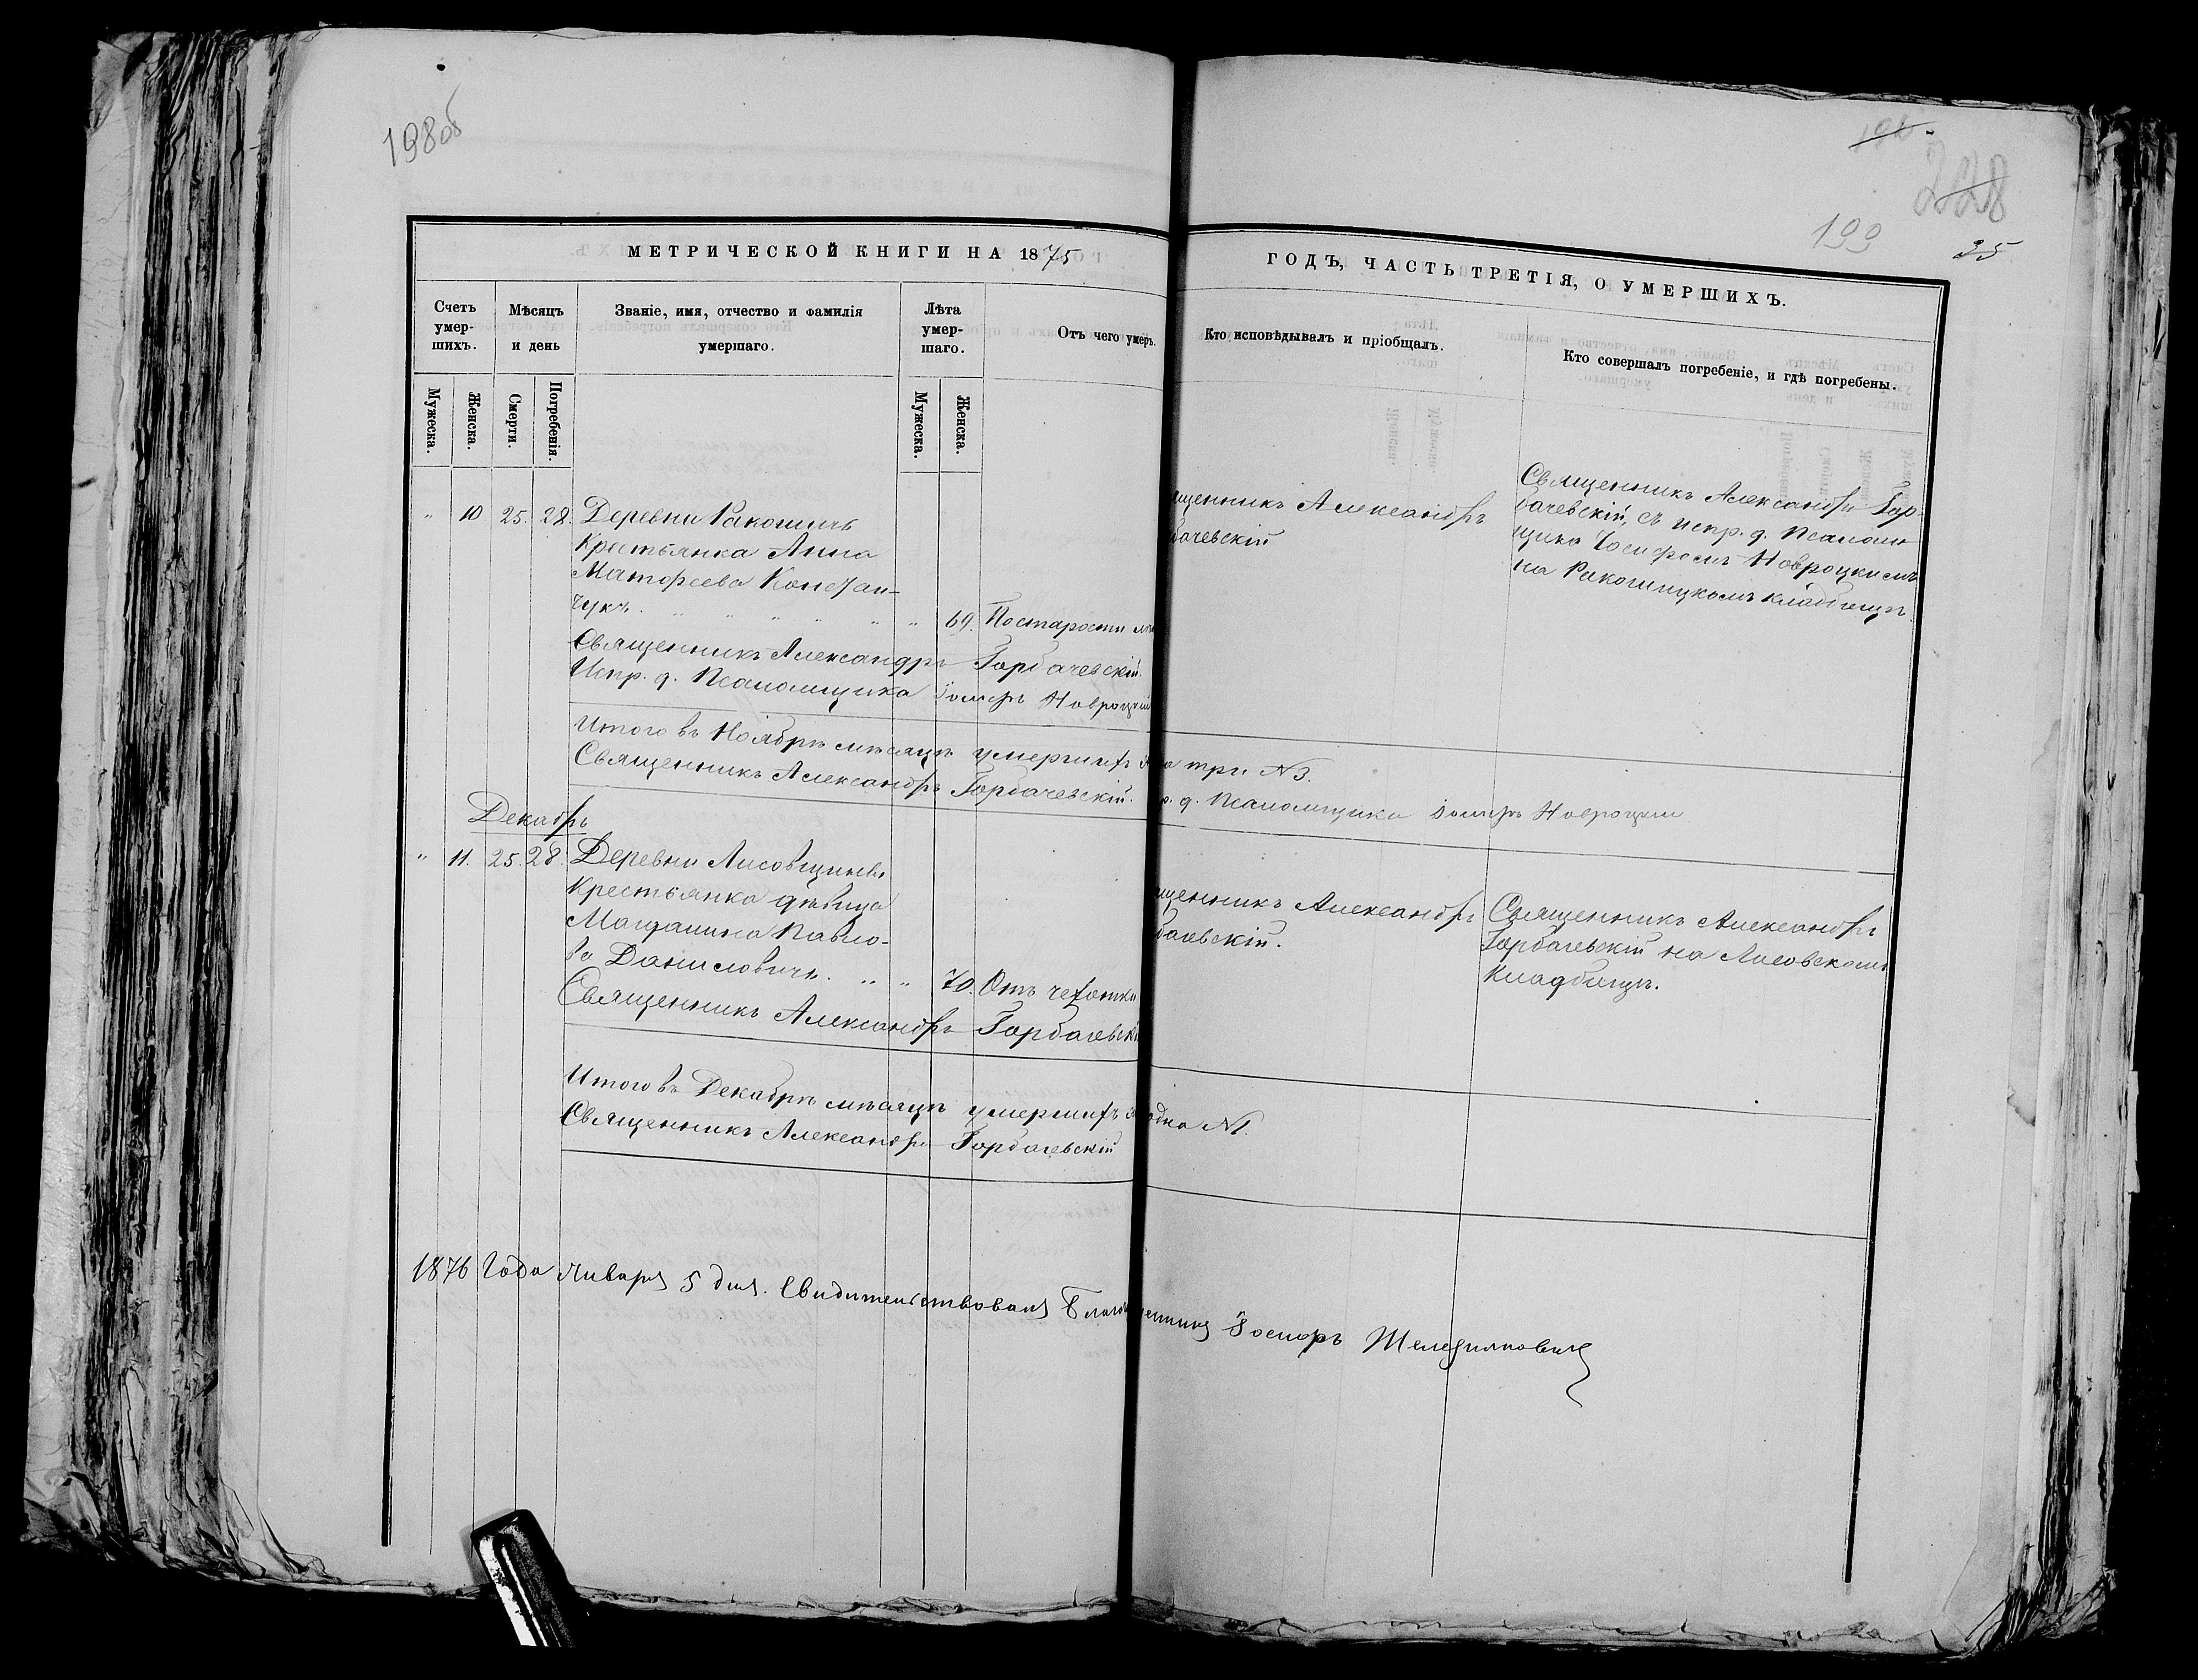 198об
228
199
35
МЕТРИЧЕСКОЙ КНИГИ НА 1875
ГОДЪ, ЧАСТЬ ТРЕТІЯ, О УМЕРШИХЪ.
Счетъ умер-шихъ.
Мѣсяцъ и день
Званіе, имя, отчество и фамилія умершаго.
Лѣта умер-шаго.
Отъ чего умеръ.
Кто исповѣдывалъ и пріобщалъ.
Кто совершалъ погребеніе, и гдѣ погребены.
Мужеска.
Женска.
Смерти.
Погребенія.
Мужеска.
Женска.
" 10 25. 28. Деревни Ракошичъ
Крестьянка Анна
Матфеева
чукъ. " " " " " " 69. По старости
щенникъ Александръ
бачевскій
Священникъ Александръ Гор-
бачевскій, съ испр. д. Псаломщика
Іосифомъ Новроцкимъ
на Ракошицкомъ кладбищѣ.
Священникъ Александръ Горбачевскій.
Испр. д. Псаломщика Іосифъ Новроцкій
Итого въ Ноябрѣ мѣсяцѣ умершихъ три №3.
Священникъ Александръ Горбачевскій. р. д. Псаломщика Іосифъ Новроцкій
Декабрь
" 11. 25. 28. Деревни Лисовщины
Крестьянка дѣвица
Магдалина Павло-
ва Даниловичъ. " " 70. Отъ чахотки
щенникъ Александръ
бачевскій.
Священникъ Александръ
Горбачевскій на Лисовскомъ
Кладбищѣ.
Священникъ Александръ Горбачевскі
Итого въ Декабрѣ мѣсяцѣ умершихъ одна №1.
Священникъ Александръ Горбачевскій
1876 Года Января 5 дня. Свидительствовалъ Благочинный Іосифъ